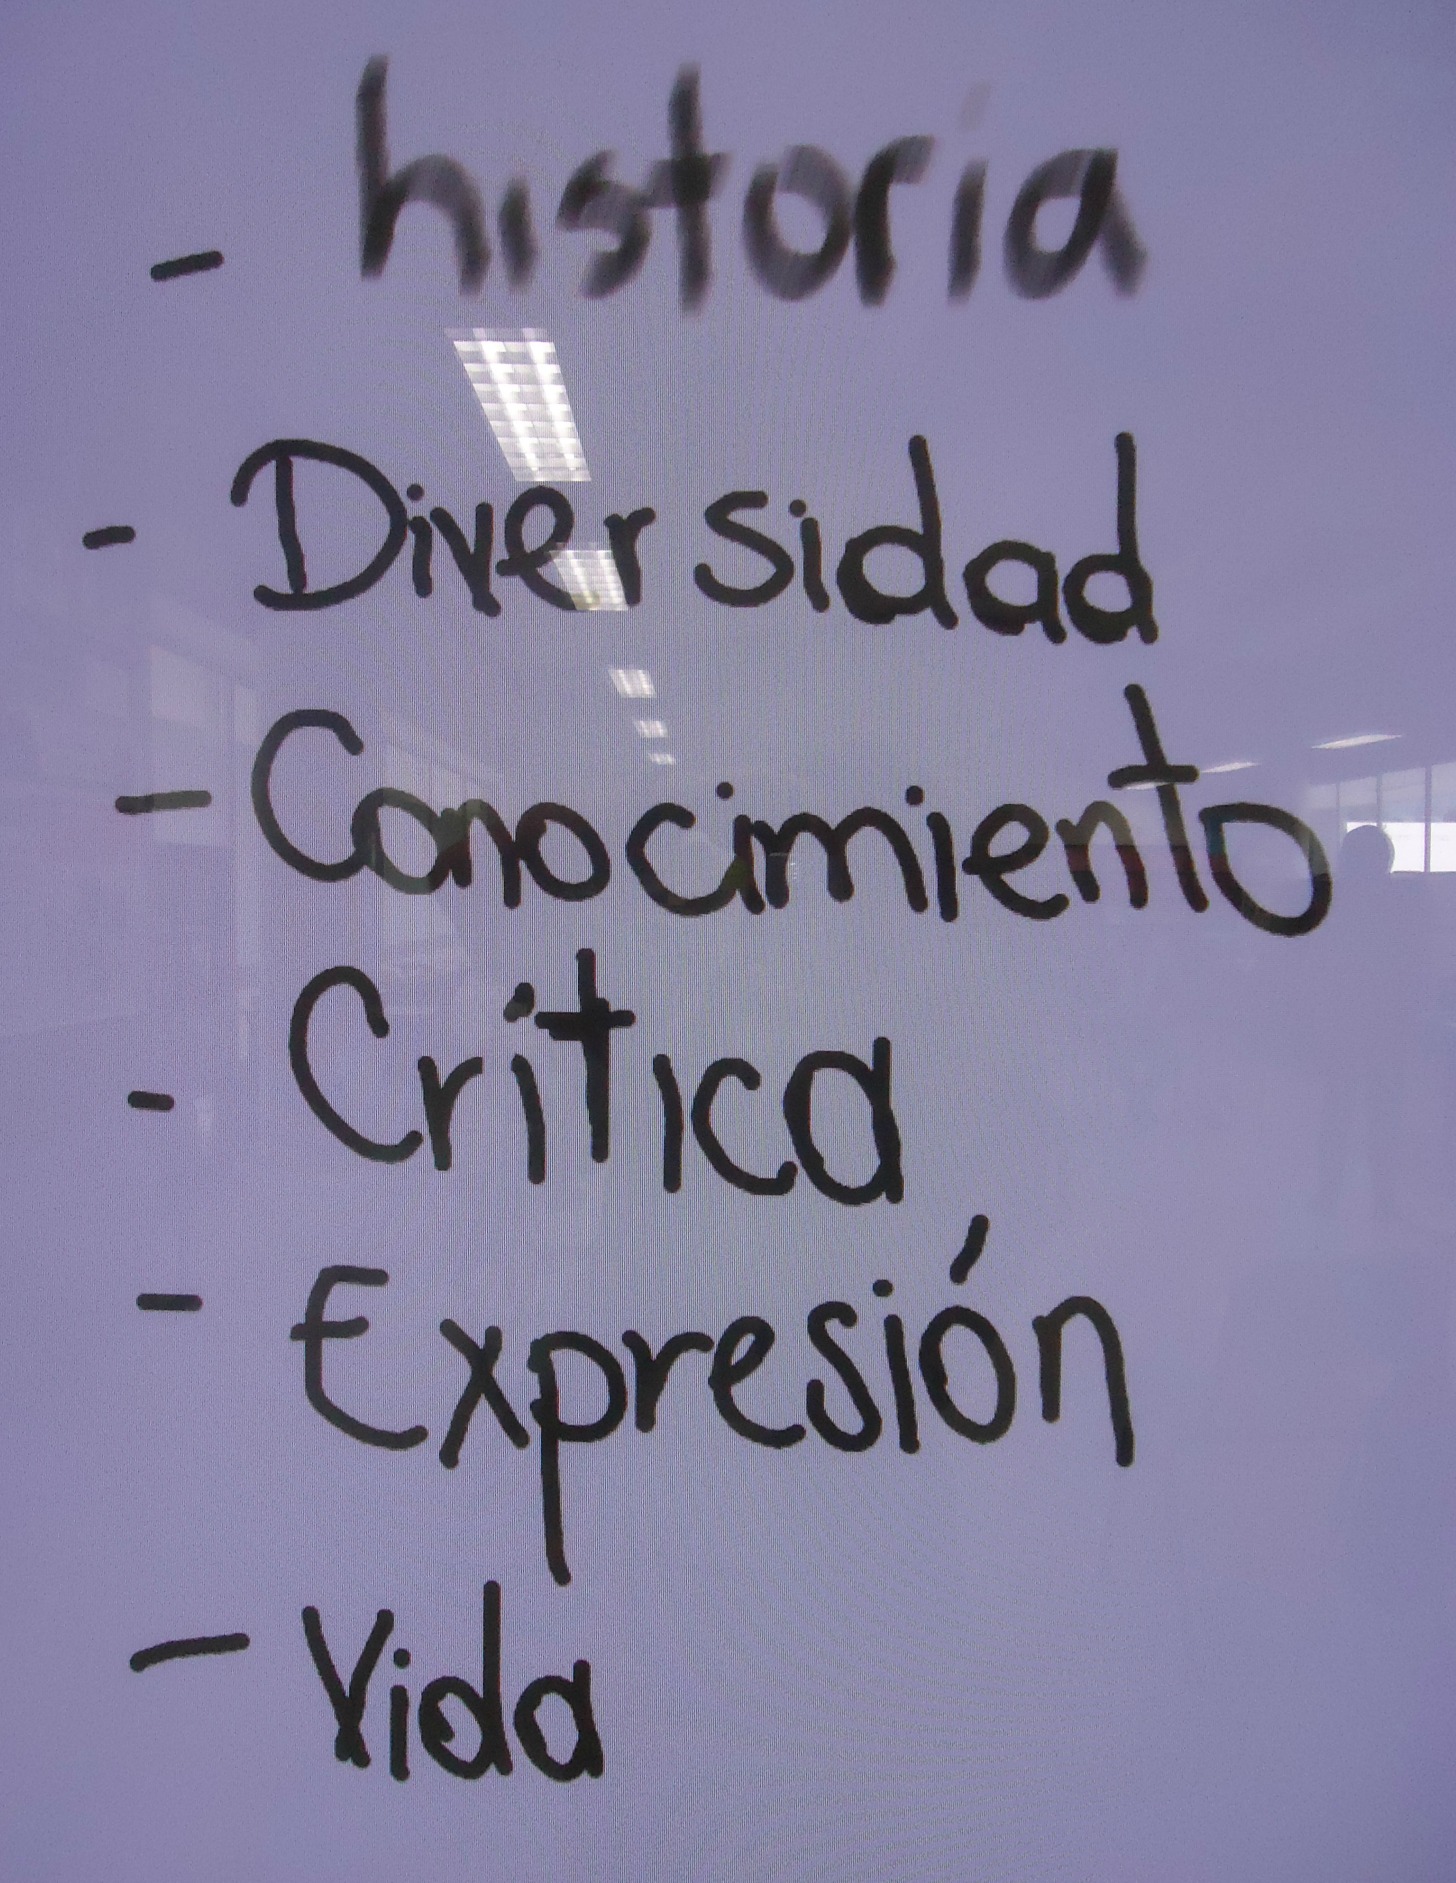 - historia
- Diversidad
- Conocimiento
- Crítica
- Expresión
- Vida